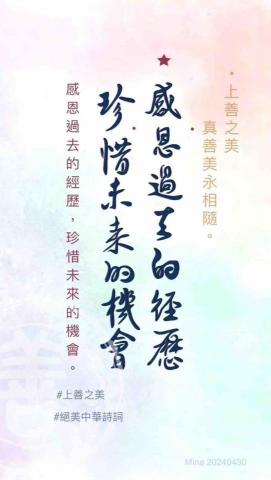 ·上善之美
真善美永相隨。
感恩過去的經歷
珍惜未来的機會
感恩過去的經歷，珍惜未來的機會。
#上善之美
#絕美中華詩詞
Mine 20240430